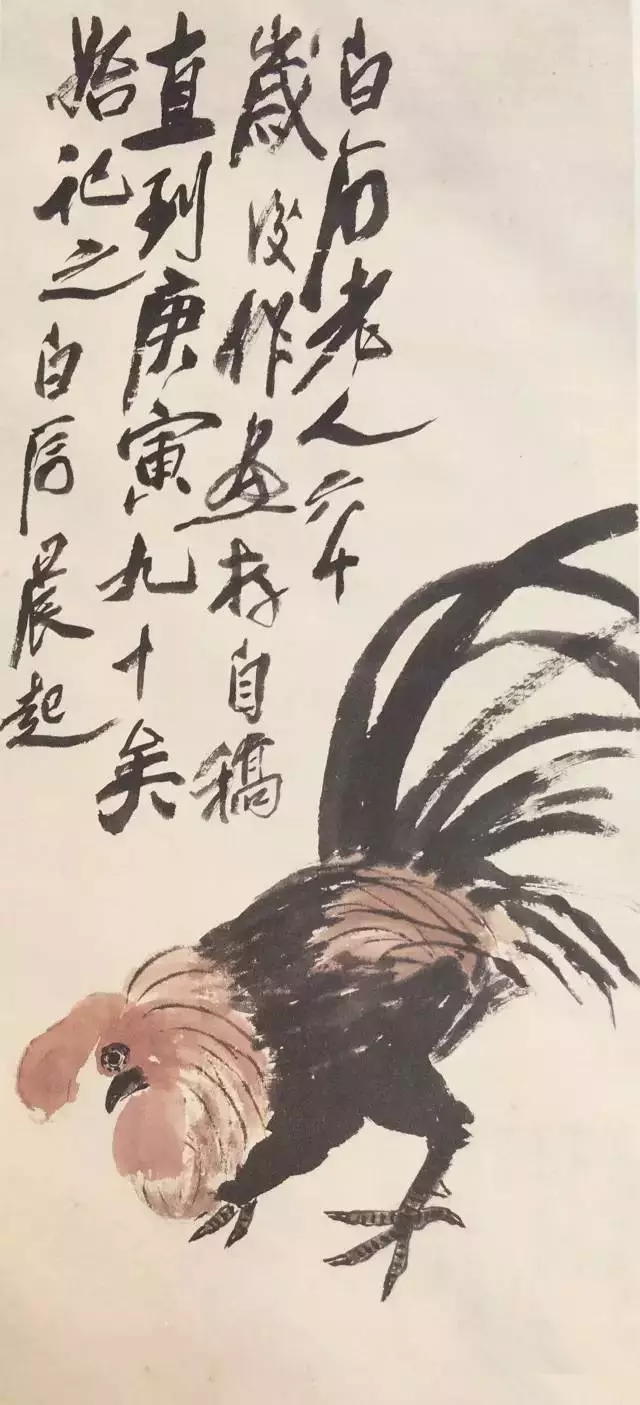 白石老人六十
岁後作画存自稿
直到庚寅九十矣
始记之白石晨起